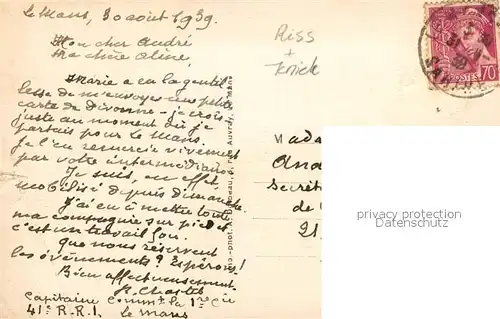 Le Mans, 30 août 1939.
Mon cher André
Ma chère Aline,
Marie a eu la gentil
lesse de m'envoyer une petite
carte de Divonne - je crois,
juste au moment où je
partais pour Le Mans.
Je l'en remercie vivement
par votre intermédiaire.
Je suis, en effet,
mobilisé depuis dimanche.
J'ai eu à mettre toute
ma compagnie sur pied et
c'est un travail fou.
Que nous réservent
les événements? Espérons!
Bien affectueusement.
Capitaine Commt la 1re Cie
41e R.R.I. Le Mans
Riss
+
Knick
POSTES
70c
Mada
And
Secrét
de
21
privacy protection
Datenschutz